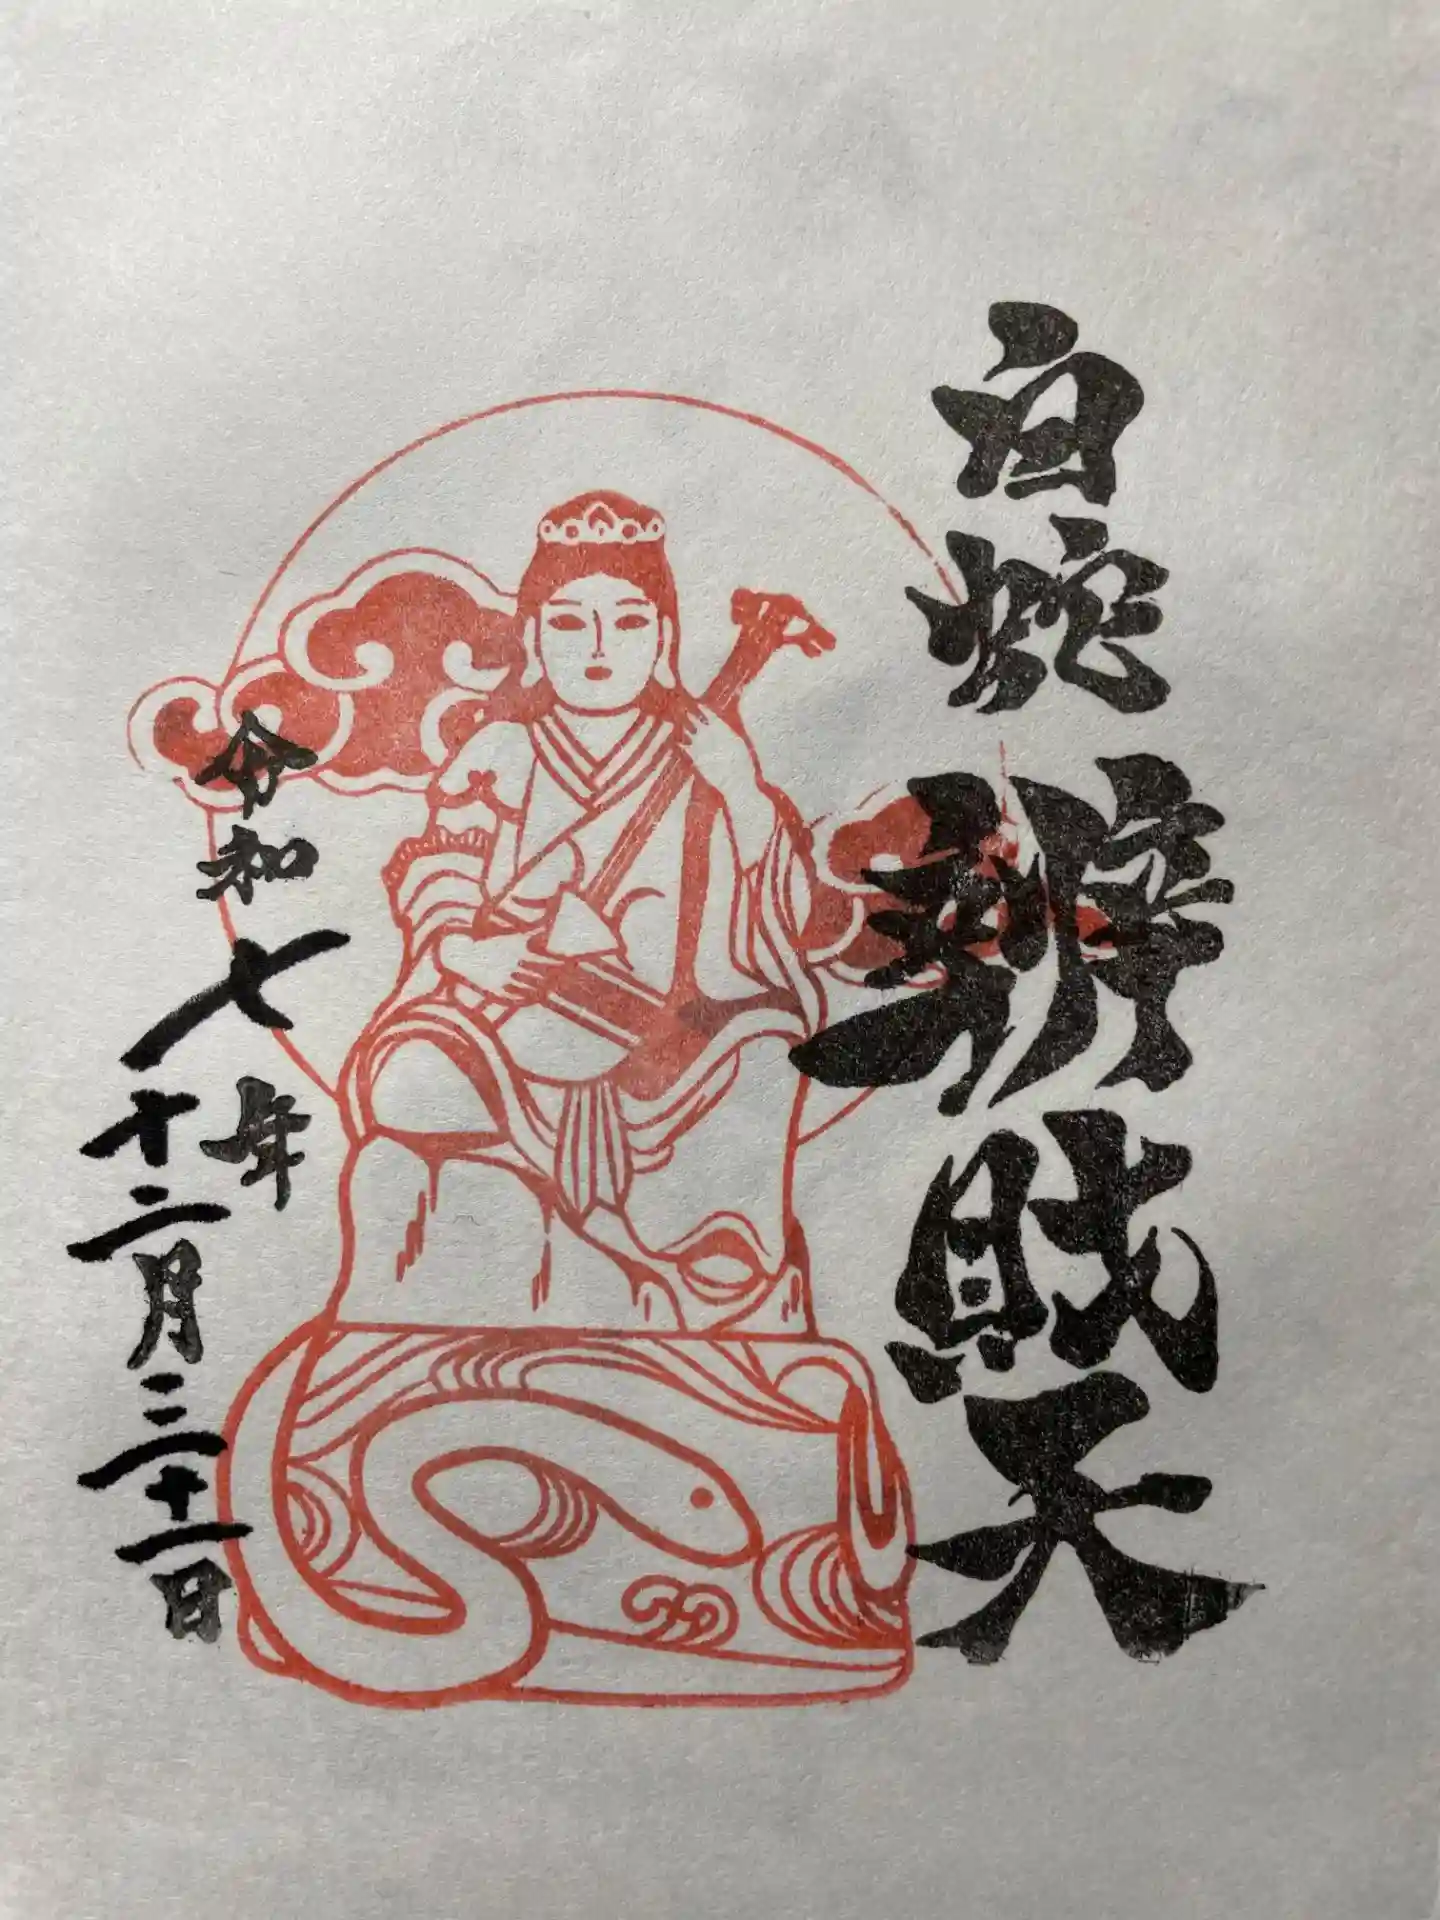 白蛇辨財天
令和七年
十二月三十一日